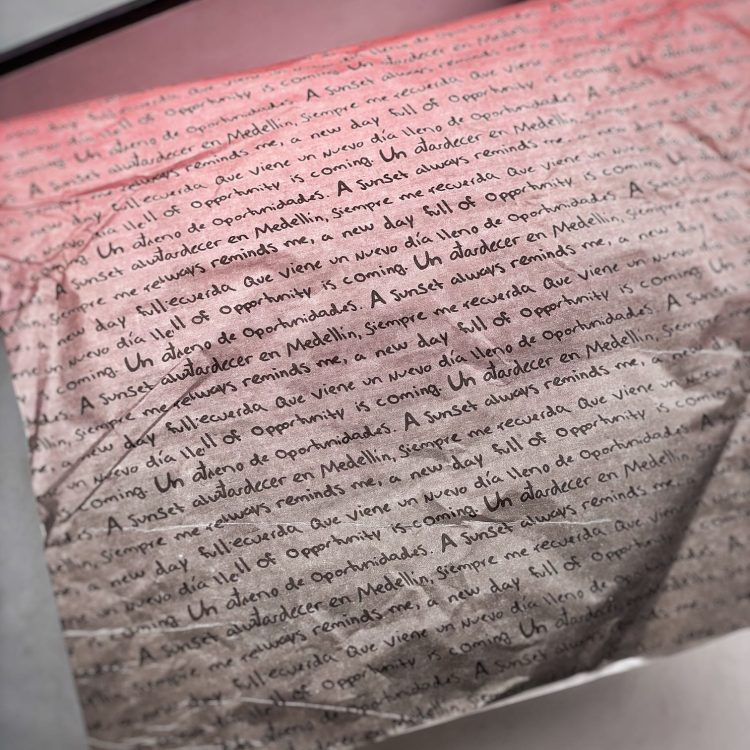 A sunset always reminds me
Que Viene un nuevo día lleno de Oportunidades. Un atardecer en Medellín, siempre me recuerda Que Viene
Opportunity is coming. A sunset always reminds me, a new day full of Opportunity is coming. Un atardecer
Un atreno de Oportunidades. A sunset always reminds me
A sunset alwatardecer en Medellín, siempre me recuerda Que Viene un nuevo día lleno de Oportunidades.
relways reminds me, a new day full of Opportunity is coming. Un atardecer en Medellín,
day full ecuerda Que Viene un nuevo día lleno de Oportunidades. A sunset always reminds me
día llell of Opportunity is coming. Un atardecer en Medellín, siempre me recuerda
Un atreno de Oportunidades. A sunset always reminds me, a new day full of
A sunset alwatardecer en Medellín, siempre me recuerda Que Viene un nuevo día lleno de Oportunidades. A
siempre me relways reminds me, a new day full of Opportunity is coming. Un atardecer en Medellín, siempre
new day full ecuerda Que Viene un nuevo día lleno de Oportunidades. A sunset always reminds me, a new day
un nuevo día llell of Opportunity is coming. Un atardecer en Medellín, siempre me recuerda Que Viene
coming. Un atreno de Oportunidades. A sunset always reminds me, a new day full of Opportunity is coming.
A sunset alwatardecer en Medellín, siempre me recuerda Que Viene un nuevo día lleno de Oportunidades.
siempre me relways reminds me, a new day full of Opportunity is coming. Un atardecer en Medellín,
a new day full ecuerda Que Viene un nuevo día lleno de Oportunidades. A sunset always reminds me, a
un nuevo día llell of Opportunity is coming. Un atardecer en Medellín, siempre me recuerda Que
coming. Un atreno de Oportunidades. A sunset always reminds me, a new day full of Opportunity
A sunset alwatardecer en Medellín, siempre me recuerda Que Viene un nuevo día lleno de Oportunidades.
siempre me relways reminds me, a new day full of Opportunity is coming. Un atardecer en Medellín,
a new day full ecuerda Que Viene un nuevo día lleno de Oportunidades. A sunset always reminds me
nuevo día llell of Opportunity is coming. Un atardecer en Medellín, siempre me recuerda
coming. Un atreno de Oportunidades. A sunset always reminds me, a new day full of Opportunity
A sunset alwatardecer en Medellín, siempre me recuerda Que Viene un nuevo día lleno de
siempre me relways reminds me, a new day full of Opportunity is coming. Un atardecer
day full ecuerda Que Viene un nuevo día lleno de Oportunidades. A sunset always
día llell of Opportunity is coming. Un
Un atreno de Oportunidades.